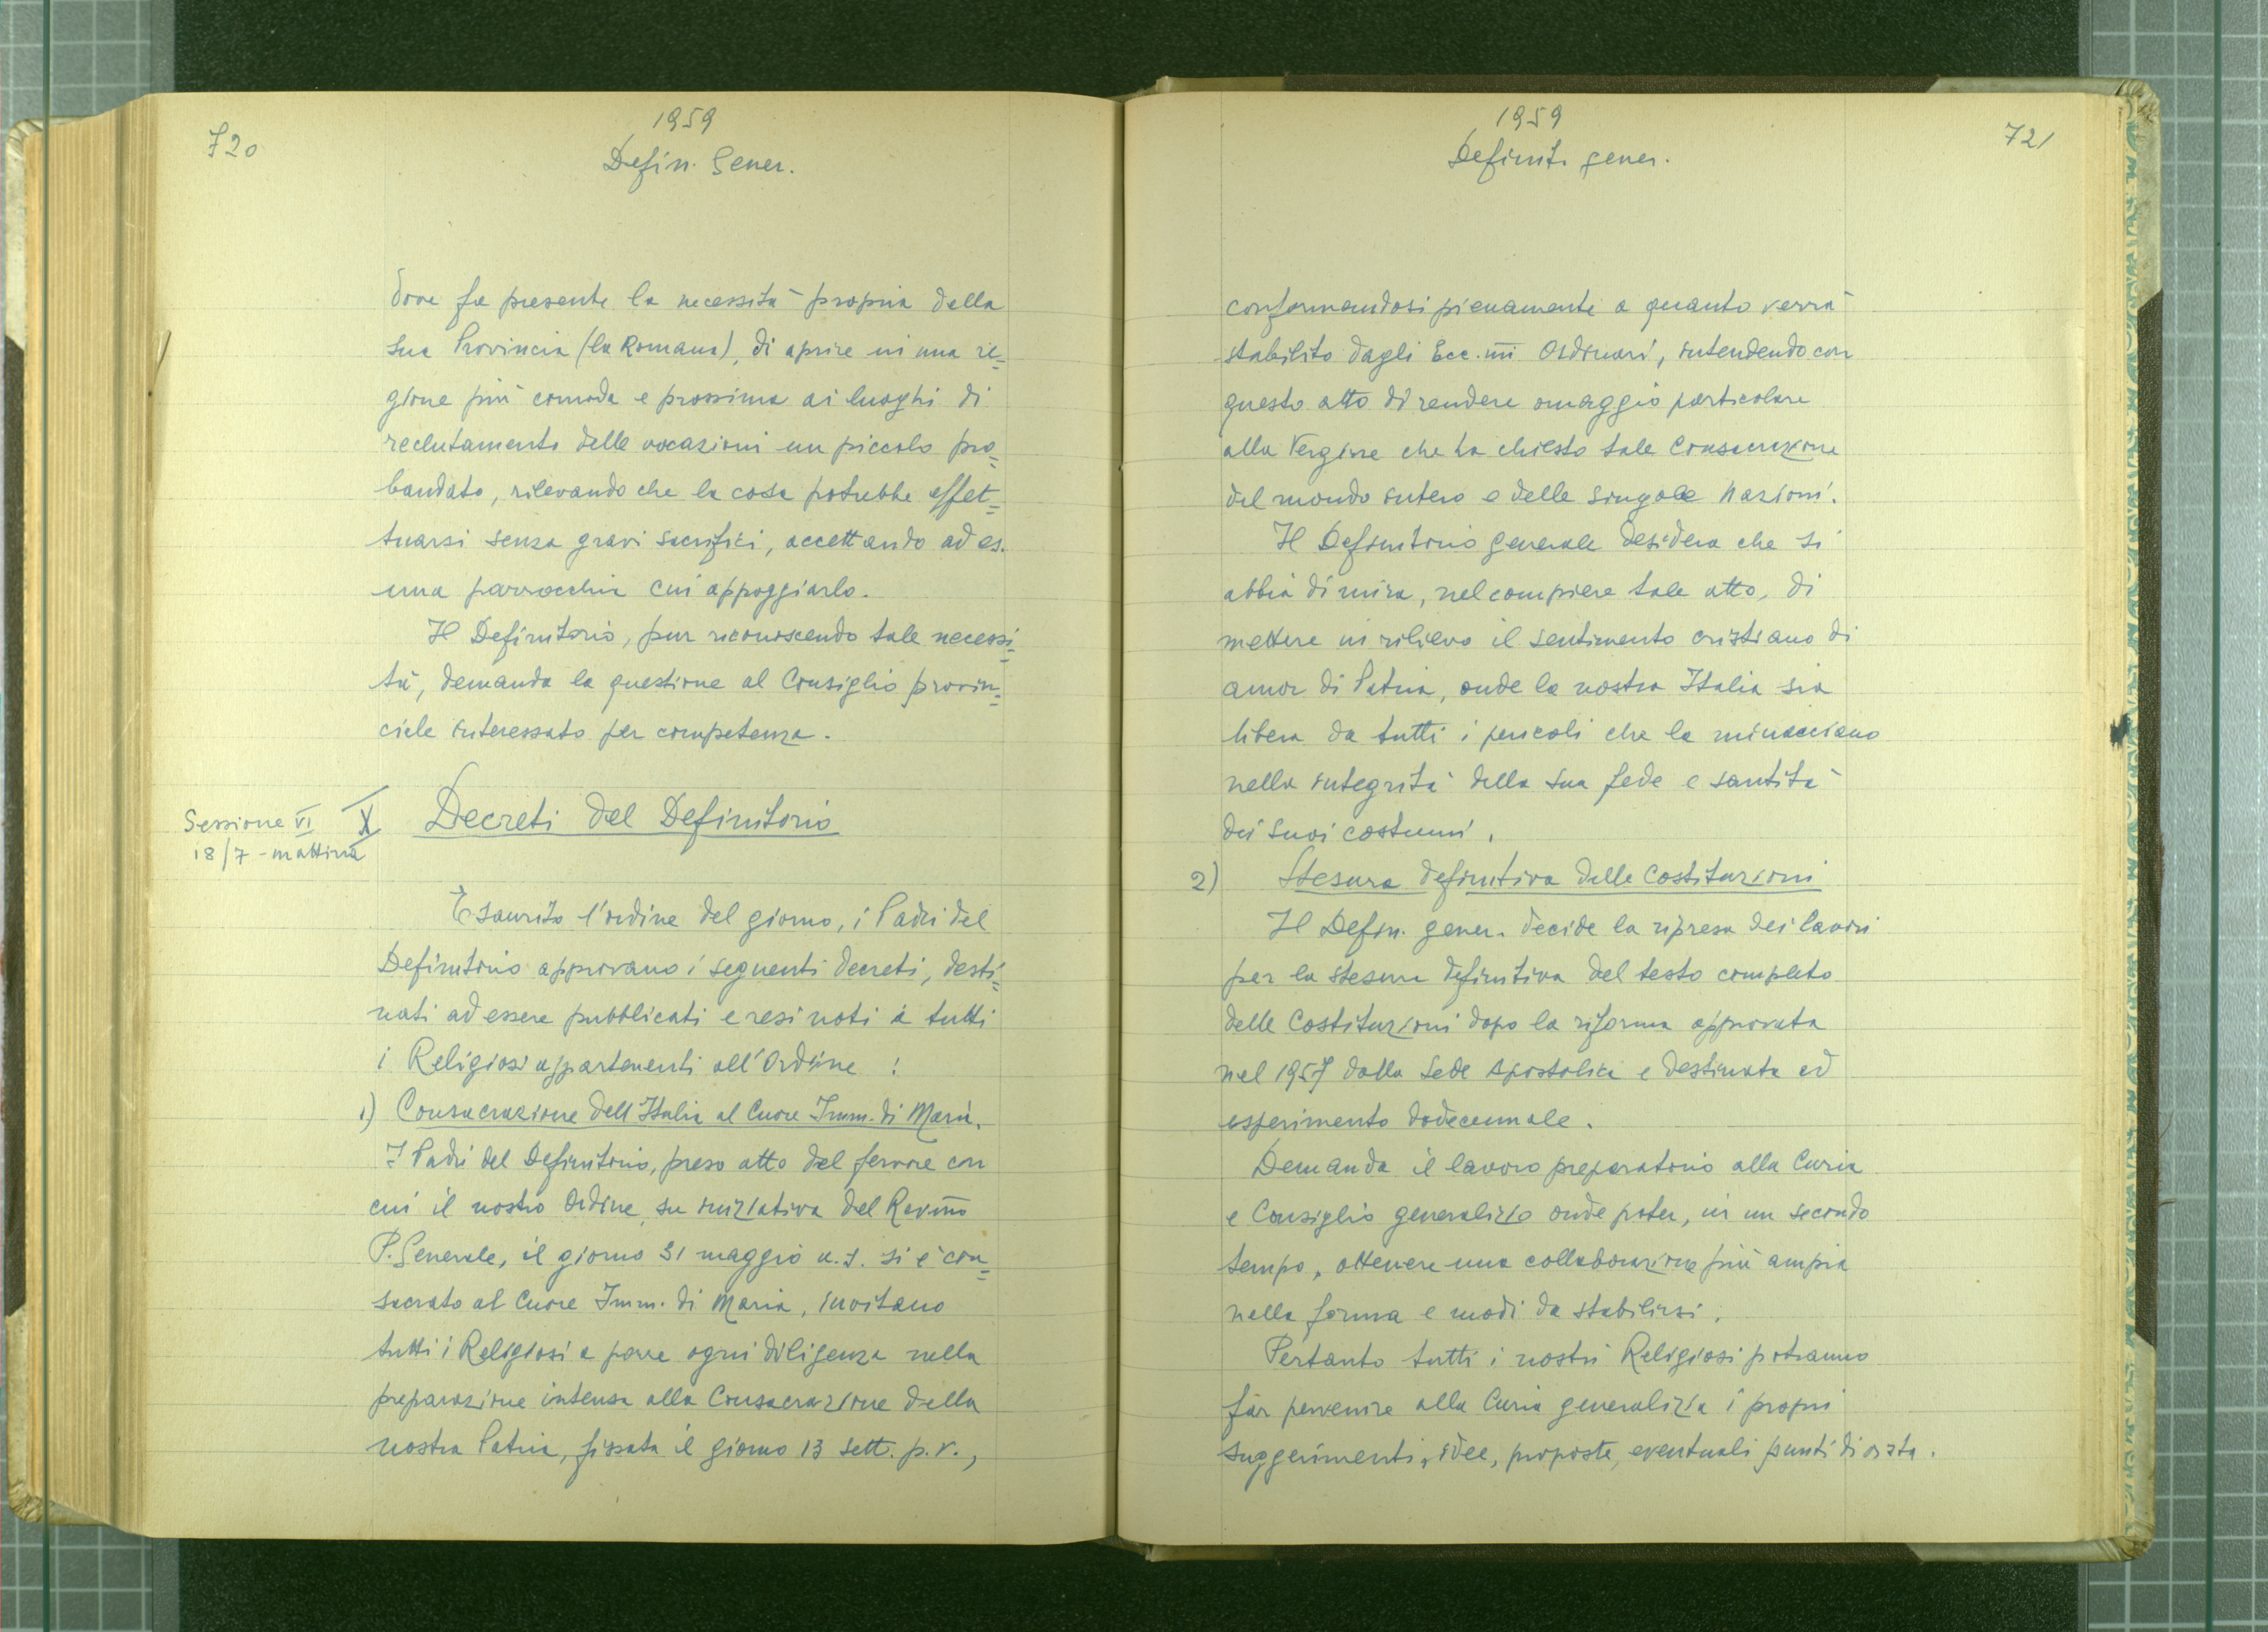 720
1959
Defin. Gener.
dove fa presente la necessità propria della
sua Provincia (la Romana), di aprire in una re=
gione più comoda e prossima ai luoghi di
reclutamento delle vocazioni un piccolo pro=
bandato, rilevando che la cosa potrebbe effet=
tuarsi senza gravi sacrifici, accettando ad es.
una parrocchia cui appoggiarlo.
Il Definitorio, pur riconoscendo tale necessi=
tà, demanda la questione al Consiglio provin=
ciale interessato per competenza.
Sessione VI
18/7 - mattina
X Decreti del Definitorio
Esaurito l'ordine del giorno, i Padri del
Definitorio approvano i seguenti decreti, desti=
nati ad essere pubblicati e resi noti a tutti
i Religiosi appartenenti all'Ordine :
1) Consacrazione dell'Italia al Cuore Imm. di Maria.
I Padri del Definitorio, preso atto del fervore con
cui il nostro Ordine, su iniziativa del Rev.mo
P. Generale, il giorno 31 maggio u.s. si è con=
sacrato al Cuore Imm. di Maria, invitano
tutti i Religiosi a porre ogni diligenza nella
preparazione intensa alla Consacrazione della
nostra Patria, fissata il giorno 13 sett. p.v.,
1959
Definit. gener.
721
conformandosi pienamente a quanto verrà
stabilito dagli Ecc.mi Ordinari, intendendo con
questo atto di rendere omaggio particolare
alla Vergine che ha chiesto tale Consacrazione
del mondo intero e delle singole Nazioni.
Il Definitorio generale desidera che si
abbia di mira, nel compiere tale atto, di
mettere in rilievo il sentimento cristiano di
amor di Patria, onde la nostra Italia sia
libera da tutti i pericoli che la minacciano
nella integrità della sua fede e santità
dei suoi costumi.
2) Stesura definitiva delle Costituzioni
Il Defin. gener. decide la ripresa dei lavori
per la stesura definitiva del testo completo
delle Costituzioni dopo la riforma approvata
nel 1957 dalla Sede Apostolica e destinata ad
esperimento dodecennale.
Demanda il lavoro preparatorio alla Curia
e Consiglio generalizio onde poter, in un secondo
tempo, ottenere una collaborazione più ampia
nella forma e modi da stabilirsi.
Pertanto tutti i nostri Religiosi potranno
far pervenire alla Curia generalizia i propri
suggerimenti, idee, proposte, eventuali punti di vista.